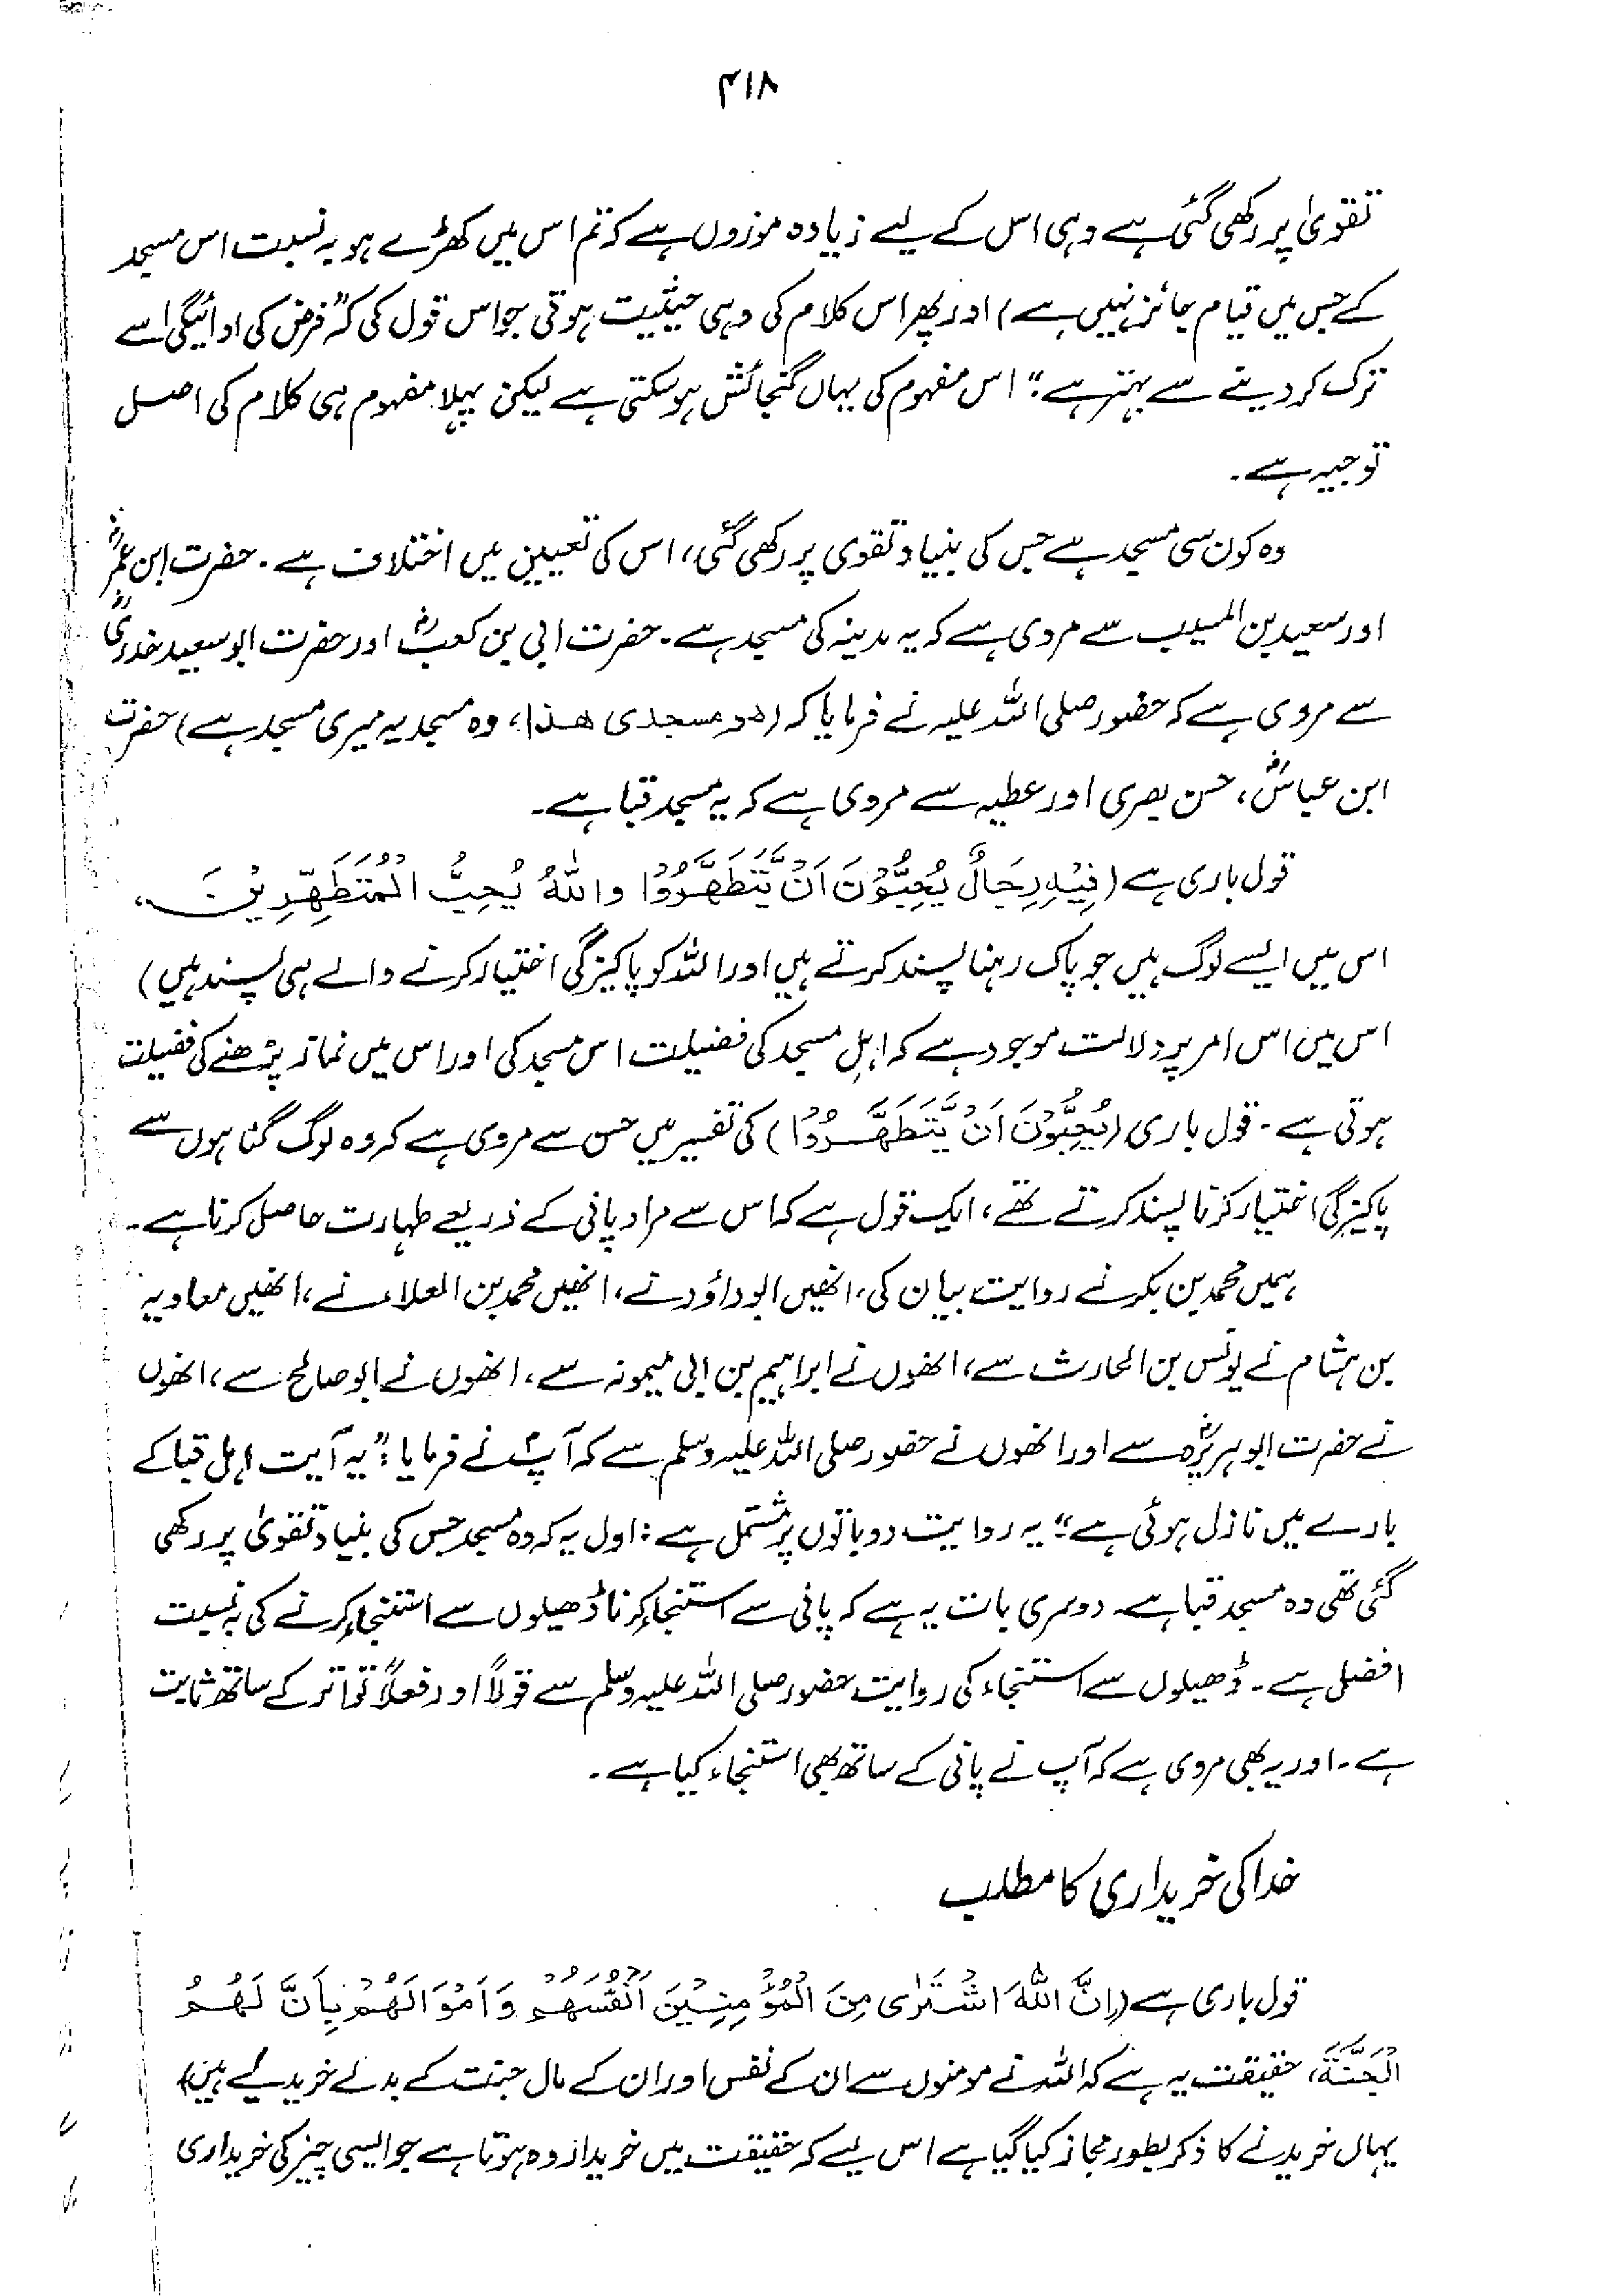 ۴۱۸
تقویٰ پر رکھی گئی ہے وہی اس کے لیے زیادہ موزوں ہے کہ تم اس میں کھڑے ہو بہ نسبت اس مسجد
کے جس میں قیام جائز نہیں ہے) اور پھر اس کلام کی وہی حیثیت ہوتی جو اس قول کی کہ "فرض کی ادائیگی اسے
ترک کر دینے سے بہتر ہے"۔ اس مفہوم کی یہاں گنجائش ہو سکتی ہے لیکن پہلا مفہوم ہی کلام کی اصل
توجیہ ہے۔
وہ کون سی مسجد ہے جس کی بنیاد تقوی پر رکھی گئی، اس کی تعیین میں اختلاف ہے۔ حضرت ابن عمرؓ
اور سعید بن المسیب سے مروی ہے کہ یہ مدینہ کی مسجد ہے۔ حضرت ابی بن کعبؓ اور حضرت ابو سعید خدریؓ
سے مروی ہے کہ حضور صلی اللہ علیہ نے فرمایا کہ (ھو مسجدی ھذا، وہ مسجد یہ میری مسجد ہے) حضرت
ابن عباسؓ، حسن بصری اور عطیہ سے مروی ہے کہ یہ مسجد قبا ہے۔
قول باری ہے (فِیْہِ رِجَالٌ یُحِبُّوْنَ اَنْ یَّتَطَھَّرُوْا وَاللّٰہُ یُحِبُّ الْمُتَطَھِّرِیْنَ،
اس میں ایسے لوگ ہیں جو پاک رہنا پسند کرتے ہیں اور اللہ کو پاکیزگی اختیار کرنے والے ہی پسند ہیں)
اس میں اس امر پر دلالت موجود ہے کہ اہلِ مسجد کی فضیلت اس مسجد کی اور اس میں نماز پڑھنے کی فضیلت
ہوتی ہے۔ قول باری (یُحِبُّوْنَ اَنْ یَّتَطَھَّرُوْا) کی تفسیر میں حسن سے مروی ہے کہ وہ لوگ گناہوں سے
پاکیزگی اختیار کرنا پسند کرتے تھے، ایک قول ہے کہ اس سے مراد پانی کے ذریعے طہارت حاصل کرنا ہے۔
ہمیں محمد بن بکر نے روایت بیان کی، انھیں ابو داؤد نے، انھیں محمد بن العلاء نے، انھیں معاویہ
بن ہشام نے یونس بن الحارث سے، انھوں نے ابراہیم بن ابی میمونہ سے، انھوں نے ابو صالح سے، انھوں
نے حضرت ابو ہریرہؓ سے اور انھوں نے حضور صلی اللہ علیہ وسلم سے کہ آپؐ نے فرمایا: "یہ آیت اہل قبا کے
بارے میں نازل ہوئی ہے"۔ یہ روایت دو باتوں پر مشتمل ہے: اول یہ کہ وہ مسجد جس کی بنیاد تقویٰ پر رکھی
گئی تھی وہ مسجد قبا ہے۔ دوسری بات یہ ہے کہ پانی سے استنجاء کرنا ڈھیلوں سے استنجاء کرنے کی بہ نسبت
افضل ہے۔ ڈھیلوں سے استنجاء کی روایت حضور صلی اللہ علیہ وسلم سے قولاً اور فعلاً تواتر کے ساتھ ثابت
ہے۔ اور یہ بھی مروی ہے کہ آپ نے پانی کے ساتھ بھی استنجاء کیا ہے۔
خدا کی خریداری کا مطلب
قول باری ہے (اِنَّ اللّٰہَ اشْتَرٰی مِنَ الْمُؤْمِنِیْنَ اَنْفُسَھُمْ وَاَمْوَالَھُمْ بِاَنَّ لَھُمُ
الْجَنَّۃَ، حقیقت یہ ہے کہ اللہ نے مومنوں سے ان کے نفس اور ان کے مال جنت کے بدلے خرید لیے ہیں)
یہاں خریدنے کا ذکر بطور مجاز کیا گیا ہے اس لیے کہ حقیقت میں خریدار وہ ہوتا ہے جو ایسی چیز کی خریداری